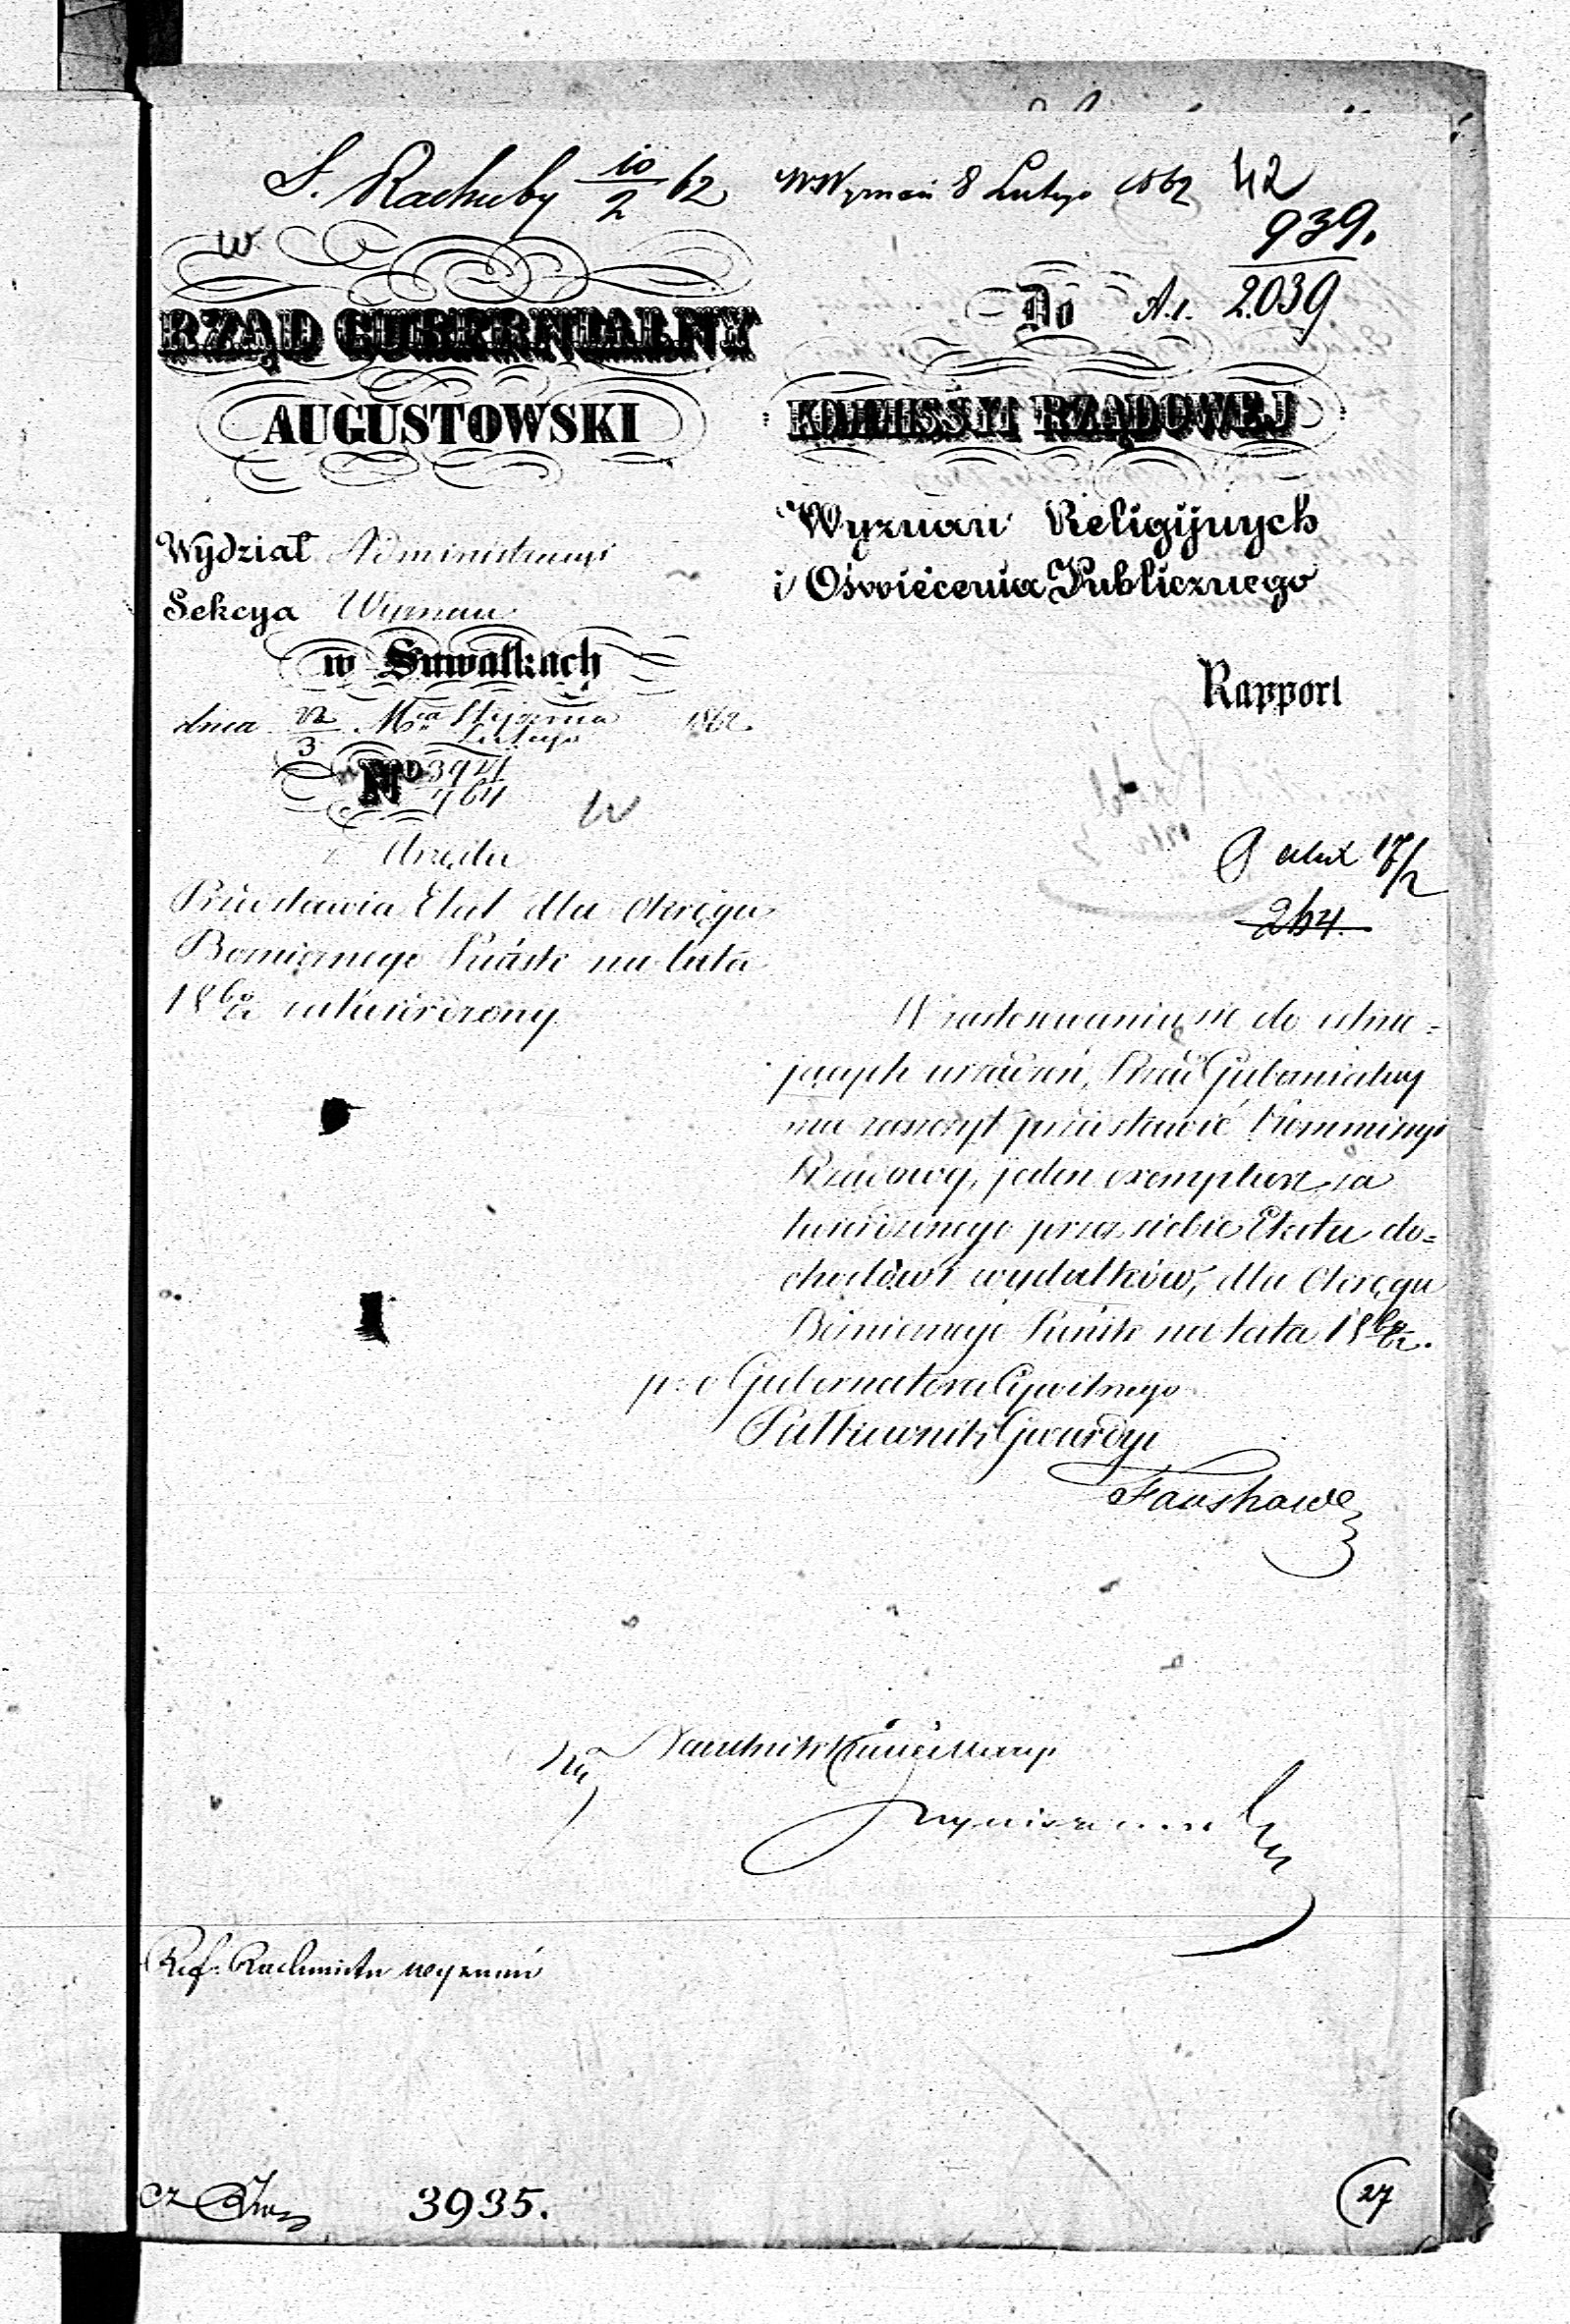 S. Rachuby 10/2 62
W Wyznań 8 Lutego 1862
42
939.
2039
w
RZĄD GUBERNIALNY
AUGUSTOWSKI
Do A.1.
KOMMISSYI RZĄDOWEJ
Wyznań Religijnych
i Oświécenia Publicznego
Wydział Administracyi
Sekcya Wyznań
w Suwałkach
dnia 22/3 Mca Stycznia/Lutego 1862.
No 3941
764
Rapport
z Urzędu
Przedstawia Etat dla Okręgu
Bożniczego Puńsk na lata
1860/62 zatwierdzony
17/2
264.
W zastosowaniu się do istnie=
jących urządzeń, Rząd Gubernialny
ma zaszczyt przedstawić Kommissyi
Rządowej, jeden exemplarz za
twierdzonego przez siebie Etatu do=
chodów i wydatków, dla Okręgu
Bożniczego Puńsk na lata 1860/62.
p. o Gubernatora Cywilnego
Pułkownik Gwardyi
Naczelnik Kancellaryi
Ref. Rachmistrz wyznań
cz
3935.
27